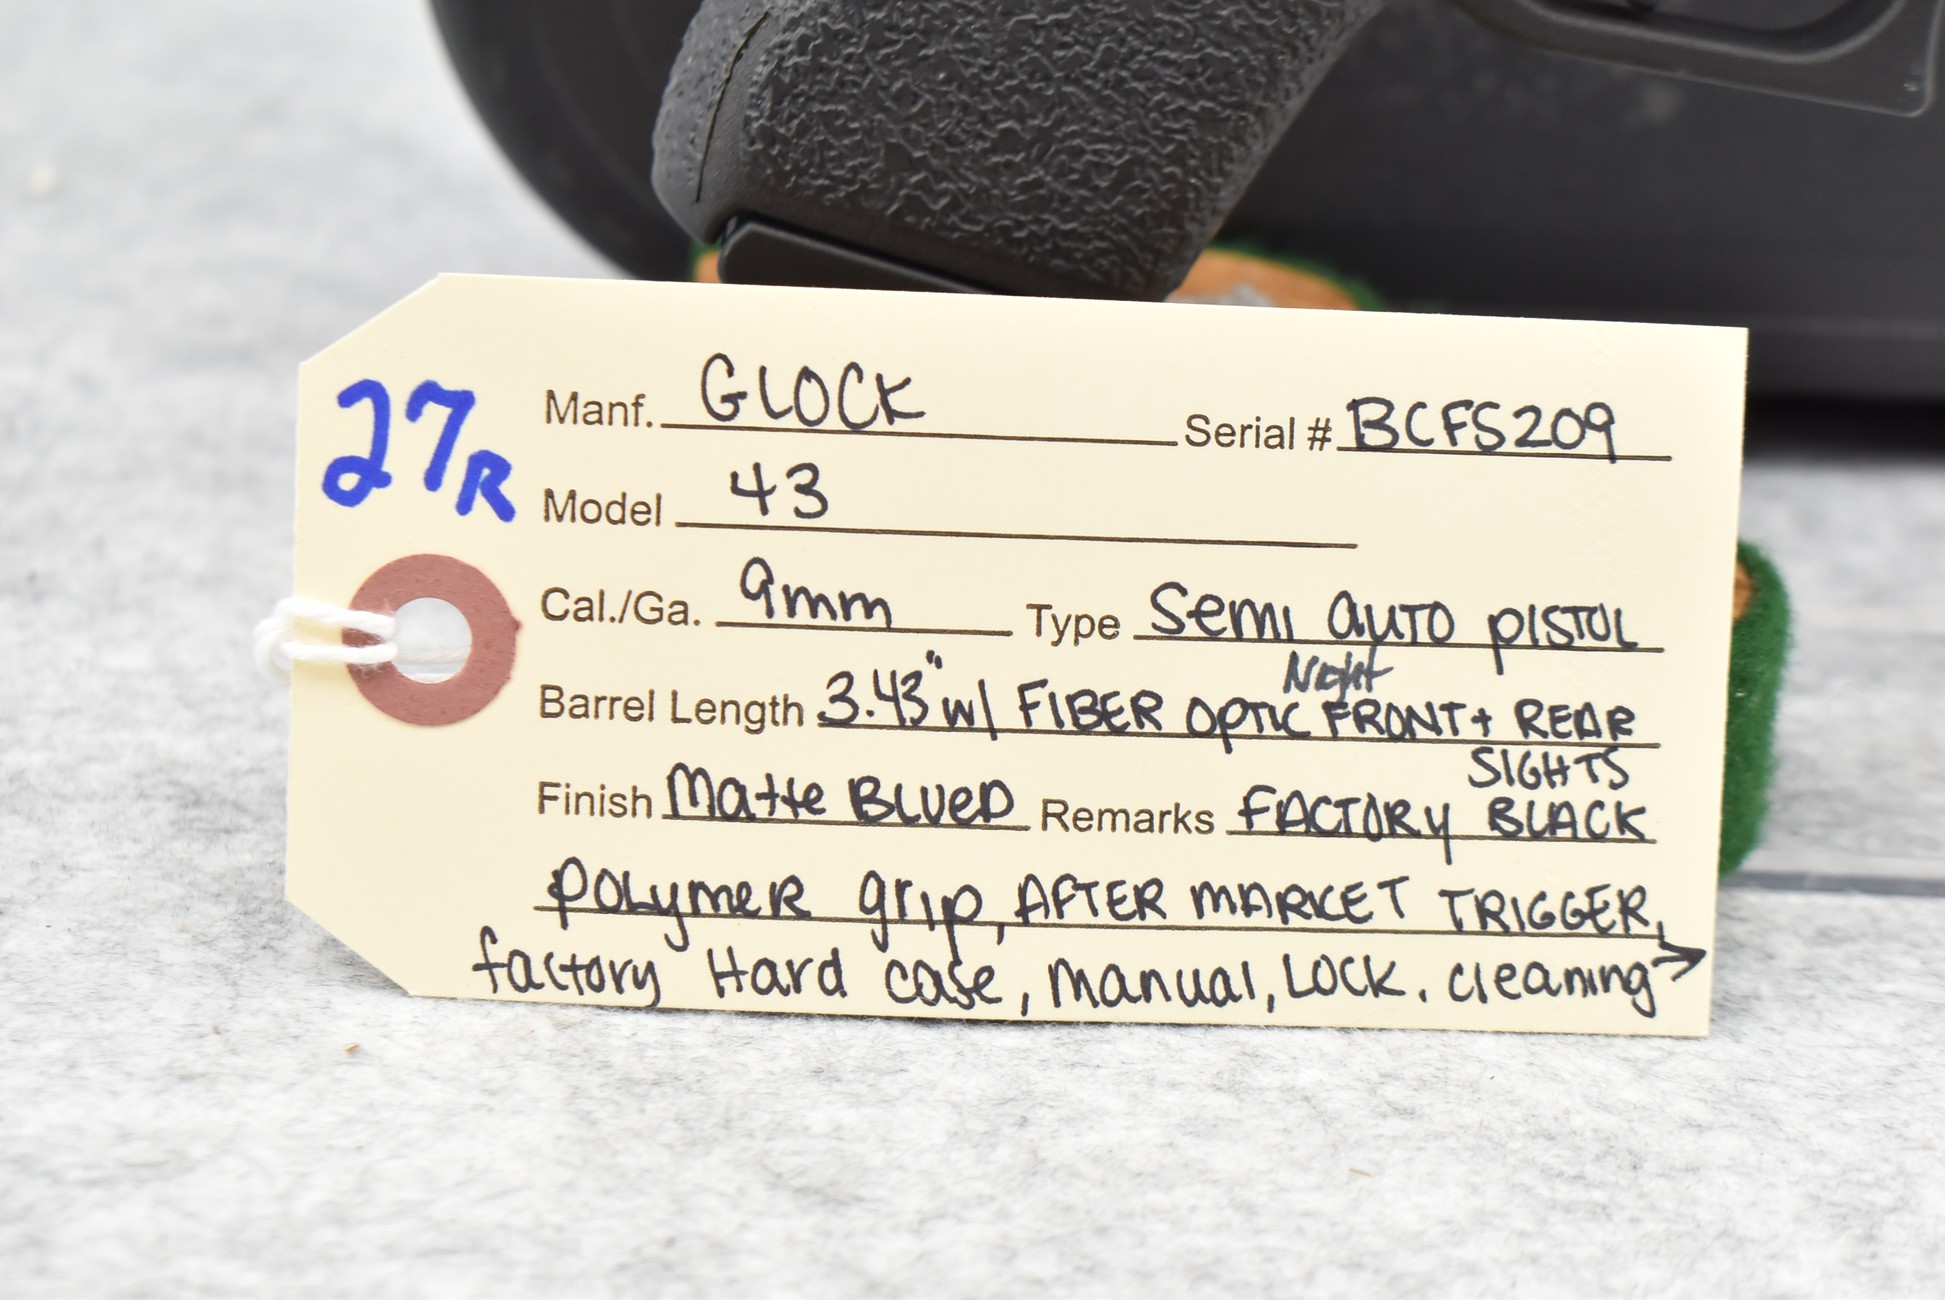 27R
Manf. GLOCK Serial # BCFS209
Model 43
Cal./Ga. 9mm Type Semi AUTO PISTOL
Night
Barrel Length 3.43" w/ FIBER OPTIC FRONT + REAR
SIGHTS
Finish Matte BLUED Remarks FACTORY BLACK
POLYMER grip, AFTER MARKET TRIGGER,
factory Hard case, manual, LOCK. cleaning →